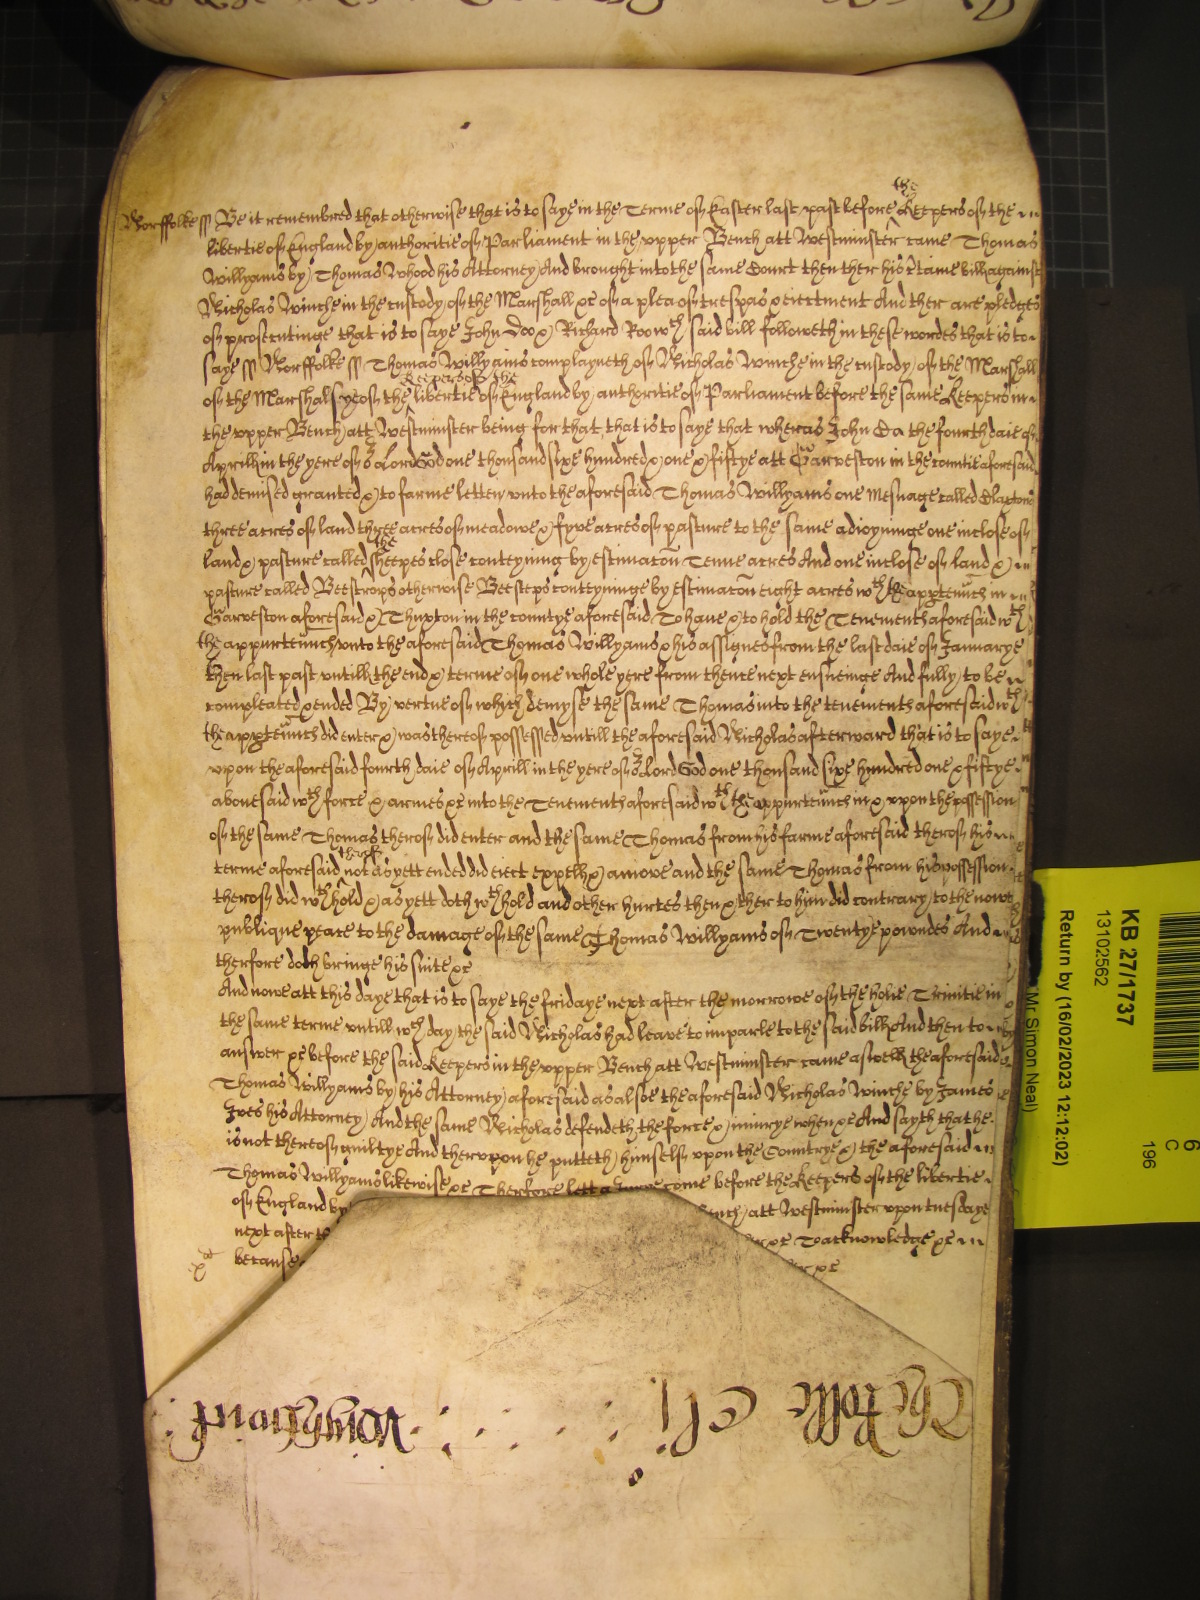 Norffolke ss Be it remembred that otherwise that is to saye in the Terme of Easter last past before the Keepers of the
libertie of England by authoritie of Parliament in the vpper Bench att Westminster came Thomas
Willyams by Thomas Whood his Attorney And brought into the same Court then ther his certaine bill against
Nicholas Winche in the custody of the Marshall &c of a plea of trespas & eiectment And ther are pledges
of prosecutinge that is to saye John Doo & Richard Roo wch said bill followeth in these wordes that is to
saye ss Norffolke ss Thomas Willyams complayneth of Nicholas Winche in the custody of the Marshall
of the Marshalsye of the Keepers of the libertie of England by authoritie of Parliament before the same Keepers in
the vpper Bench att Westminster being for that, that is to saye that wheras John the fourth daie of
Aprill in the yere of or Lord God one thousand sixe hundred & one & fiftye att Garveston in the countie aforesaid
had demised granted & to farme letten vnto the aforesaid Thomas Willyams one Mesuage called
three acres of land three acres of meadowe & fyve acres of pasture to the same adioyninge one inclose of
land & pasture called the sheepes close conteyning by estimacon Tenne acres And one inclose of land &
pasture called Beestrops otherwise Beesteps conteyninge by estimacon eight acres wth the apptenncs in
Garveston aforesaid & Thuxton in the countye aforesaid To haue & to hold the Tenements aforesaid wth
the appurtenncs vnto the aforesaid Thomas Willyams & his assignes from the last daie of Januarye
then last past vntill the end & terme of one whole yere from thence next ensueinge And fully to be
compleated & ended By vertue of which demyse the same Thomas into the tenements aforesaid wth
the apptenncs did enter & was thereof possessed vntill the aforesaid Nicholas afterward that is to saye
vpon the aforesaid fourth daie of Aprill in the yere of or Lord God one thousand sixe hundred one & fiftye
abouesaid wth force & armes &c into the Tenements aforesaid wth the appurtenncs in & vpon the possession
of the same Thomas therof did enter and the same Thomas from his farme aforesaid therof his
terme aforesaid therof not as yett ended did eiect expell & amove and the same Thomas from his possession
therof did wthhold & as yett doth wthhold and other hurtes then & ther to him did contrary to the nowe
publique peace to the damage of the same Thomas Willyams of Twentye powndes And
therfore doth bringe his suite &c
And nowe att this daye that is to saye the fridaye next after the morrowe of the holie Trinitie in
the same terme vntill wch day the said Nicholas had leave to imparle to the said bill And then to
answer &c before the said Keepers in the vpper Bench att Westminster came aswell the aforesaid
Thomas Willyams by his Attorney aforesaid as alsoe the aforesaid Nicholas Winche by James
Ives his Attorney And the same Nicholas defendeth the force & iniurye when &c And sayth that he
is not thereof guiltye And thervpon he putteth himself vpon the Countrye & the aforesaid
Thomas Willyams likewise &c Therfore lett a Jurye come before the Keepers of the libertie
of England by Bench att Westminster vpon tuesdaye
next after &c To acknowledge &c
because &c
The Rolle
Wightwick
KB 27/1737
13102562
Return by (16/02/2023 12:12:02)
Mr Simon Neal)
6
C
196